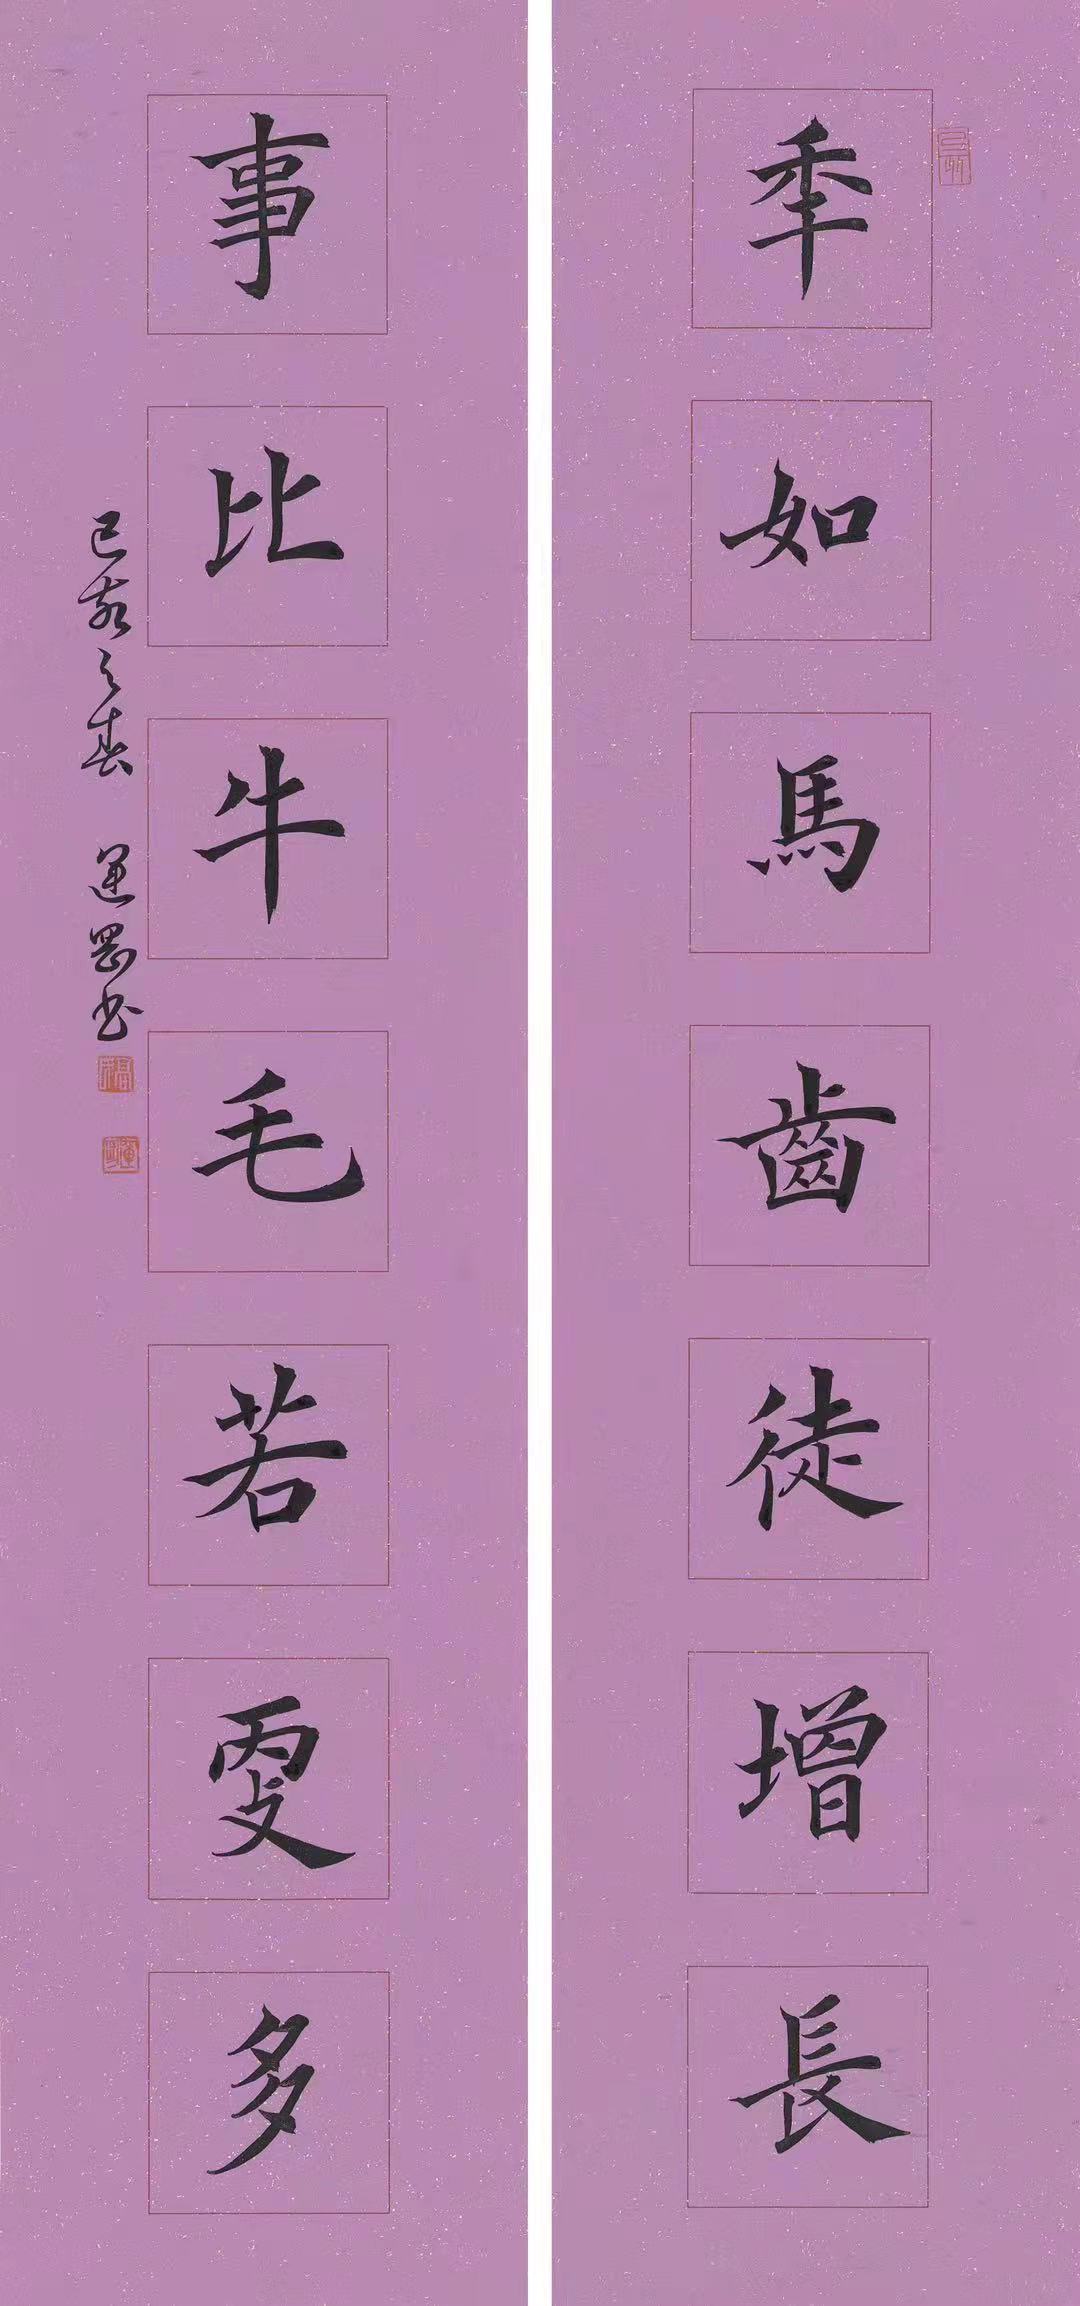 秊如馬齒徒增長
事比牛毛若㪅多
己亥之春 運罡书